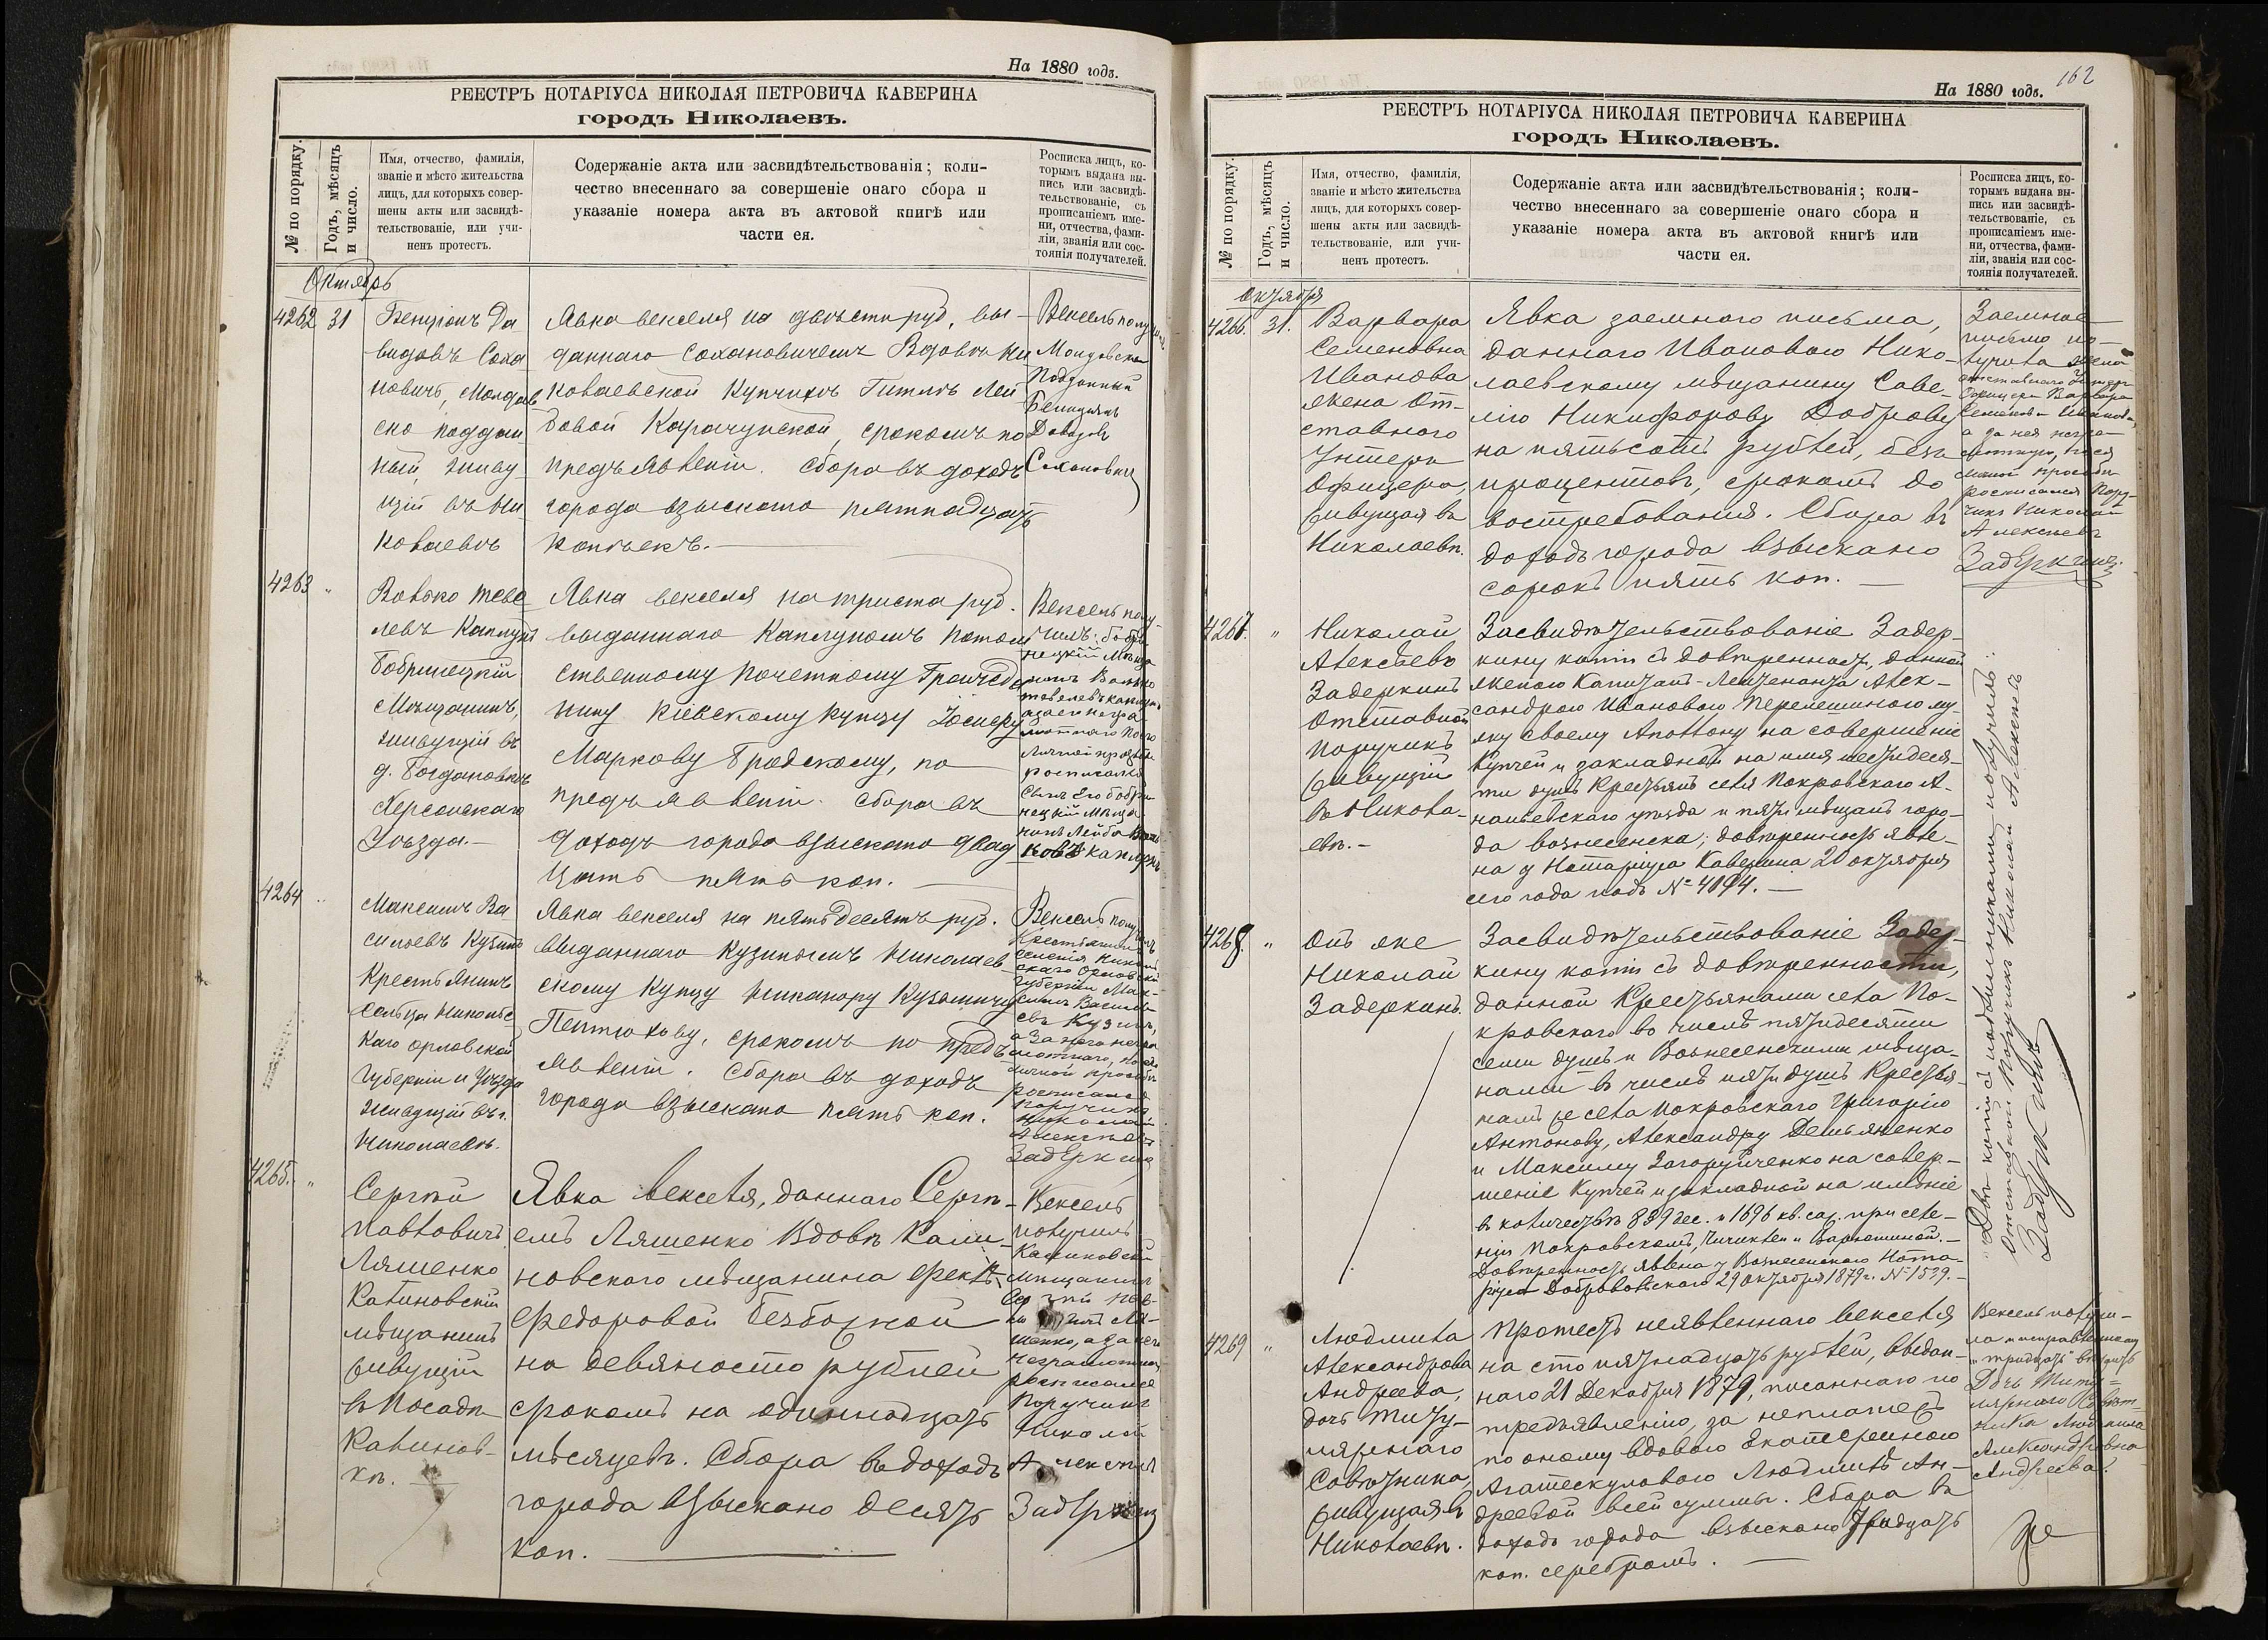 На 1880 годъ.
РЕЕСТРЪ НОТАРІУСА НИКОЛАЯ ПЕТРОВИЧА КАВЕРИНА
городъ Николаевъ.
№ по порядку.
Годъ, мѣсяцъ
и число.
Имя, отчество, фамилія,
званіе и мѣсто жительства
лицъ, для которыхъ совер-
шены акты или засвидѣ-
тельствованіе, или учи-
ненъ протестъ.
Содержаніе акта или засвидѣтельствованія; коли-
чество внесеннаго за совершеніе онаго сбора и
указаніе номера акта въ актовой книгѣ или
части ея.
Росписка лицъ, ко-
торымъ выдана вы-
пись или засвидѣ-
тельствованіе, съ
прописаніемъ име-
ни, отчества, фами-
ліи, званія или сос-
тоянія получателей.
Октябрь
4262 31
Бенціонъ Да
видовъ Соха
новичъ, Молдав
ско поддан
ный, живу
щій въ Ни
колаевѣ
Явка векселя на двѣсти руб., вы-
даннаго Сохановичемъ Вдовѣ Ни
колаевской Купчихѣ Гитлѣ Лей
бовой Карачунской, срокомъ по
предъявленіи. Сбора въ доходъ
города взыскано пятнадцать
копѣекъ.
Вексель получилъ
Молдовско
Подданный
Бенціонъ
Давидовъ
Сохановичъ
4263 "
Волько Теве
левъ Каплунъ
Бобринецкій
Мѣщанинъ,
живущій въ
д. Богдановкѣ
Херсонскаго
Уѣзда.
Явка векселя на триста руб.
выданнаго Каплуномъ Потом
ственному Почетному Гражда
нину Кіевскому купцу Іосифу
Маркову Бродскому, по
предъявленіи. Сбора въ
доходъ города взыскано двад
цать пять коп.
Вексель полу-
чилъ Бобри
нецкій Мѣща
нинъ Волько
Тевелевъ Каплунъ
а за него негра
мотнаго по его
личной просьбѣ
росписался
сынъ его Бобри
нецкій Мѣща
нинъ Лейба Воль
ковъ Каплунъ
4264 "
Максимъ Ва
сильевъ Кузинъ
Крестьянинъ
Сельца Никольс
каго Орловской
Губерніи и Уѣзда
живущій въ г.
Николаевѣ.
Явка векселя на пятьдесятъ руб.
выданнаго Кузинымъ Николаев
скому Купцу Никанору Кузьмичу
Пентюхову, срокомъ по предъ
явленіи. Сбора въ доходъ
города взыскано пять коп.
Вексель получилъ
Крестьянинъ
Орловской
Губерніи Мак-
симъ Василь
евъ Кузинъ,
а за него негра
мотнаго, по его
личной просьбѣ
росписался
Поручикъ
Николай
Алексѣевъ
Задеркинъ
4265. "
Сергѣй
Павловичъ
Ляшенко
Калиновскій
мѣщанинъ
живущій
въ Посадѣ
Калинов-
кѣ.
Явка векселя, даннаго Сергѣ-
емъ Ляшенко Вдовѣ Кали-
новскаго мѣщанина Феклѣ
Федоровой Безбожной
на девяносто рублей
срокомъ на одиннадцать
мѣсяцевъ. Сбора въ доходъ
города взыскано десять
коп.
Вексель
получилъ
Калиновскій
мѣщанинъ
Сергѣй Пав-
Ля-
шенко, а за него
неграмотнаго
росписался
Поручикъ
Николай
Алексѣевъ
Задеркинъ
162
На 1880 годъ.
РЕЕСТРЪ НОТАРІУСА НИКОЛАЯ ПЕТРОВИЧА КАВЕРИНА
городъ Николаевъ.
№ по порядку.
Годъ, мѣсяцъ
и число.
Имя, отчество, фамилія,
званіе и мѣсто жительства
лицъ, для которыхъ совер-
шены акты или засвидѣ-
тельствованіе, или учи-
ненъ протестъ.
Содержаніе акта или засвидѣтельствованія; коли-
чество внесеннаго за совершеніе онаго сбора и
указаніе номера акта въ актовой книгѣ или
части ея.
Росписка лицъ, ко-
торымъ выдана вы-
пись или засвидѣ-
тельствованіе, съ
прописаніемъ име-
ни, отчества, фами-
ліи, званія или сос-
тоянія получателей.
Октября
4266. 31.
Варвара
Семеновна
Иванова
жена От-
ставного
Унтеръ
Офицера,
живущая въ
Николаевѣ.
Явка заемнаго письма,
даннаго Ивановою Нико-
лаевскому мѣщанину Саве-
лію Никифорову Доброву
на пятьсотъ рублей, безъ
процентовъ, срокомъ до
востребованія. Сбора въ
доходъ города взыскано
сорокъ пять коп.
Заемное
письмо по-
лучила жена
отставного Унтеръ
Офицера Варвара
Семенова Иванова
а за нея негра-
мотную, по ея
личной просьбѣ
росписался Пору-
чикъ Николай
Алексѣевъ
Задеркинъ.
4267. "
Николай
Алексѣевъ
Задеркинъ
Отставной
Поручикъ
живущій
въ Никола-
евѣ.
Засвидѣтельствованіе Задер-
кину копіи съ довѣренности, данной
женою Капитанъ-Лейтенанта Алек-
сандрою Ивановою Перелешиною му-
жу своему Аполлону на совершеніе
Купчей и закладной на имя шестидеся-
ти душъ Крестьянъ села Покровскаго А-
наньевскаго уѣзда и пяти мѣщанъ горо-
да Вознесенска; довѣренность явле-
на у Нотаріуса Каверина 20 октября
сего года подъ № 4094.
4268. "
Онъ же
Николай
Задеркинъ.
Засвидѣтельствованіе Задер-
кину копіи съ довѣренности,
данной Крестьянами села По-
кровскаго во числѣ пятидесяти
семи душъ и Вознесенскими мѣща-
нами въ числѣ пяти душъ Крестья-
намъ же села Покровскаго Григорію
Антонову, Александру Демьяненко
и Максиму Загоруйченко на совер-
шеніе Купчей и закладной на имѣніе
въ количествѣ 859 дес. и 1696 кв. саж. при селе-
ніи Покровскомъ, Чичиклеи и Варюшиной.
Довѣренность явлена у Вознесенскаго Нота-
ріуса Добровольскаго 29 октября 1879 г. № 1539.
Двѣ копіи съ подлинниками получилъ:
Отставной Поручикъ Николай Алексѣевъ
Задеркинъ
4269 "
Людмила
Александрова
Андреева,
дочь Титу-
лярнаго
Совѣтника,
живущая въ
Николаевѣ.
Протестъ неявленнаго векселя
на сто пятнадцать рублей, выдан-
наго 21 Декабря 1879, писаннаго по
предъявленію, за неплатежъ
по оному вдовою Екатериною
Агатескуловою Людмилѣ Ан-
дреевой всей суммы. Сбора въ
доходъ города взыскано тридцать
коп. серебромъ.
Вексель получи-
ла и исправленному
"тридцать" вѣрить
Дочь Титу-
лярнаго Совѣт-
ника Людмила
Александровна
Андреева.